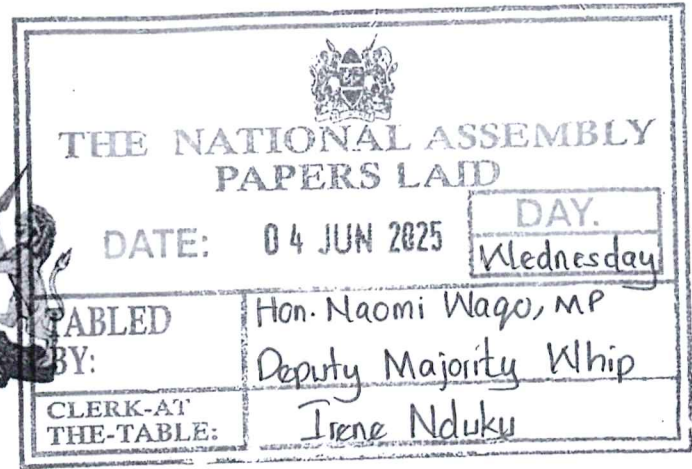 THE NATIONAL ASSEMBLY
PAPERS LAID
DATE: 04 JUN 2025
DAY.
Wednesday
TABLED BY:
Hon. Naomi Waqo, MP
Deputy Majority Whip
CLERK-AT THE-TABLE:
Irene Nduku